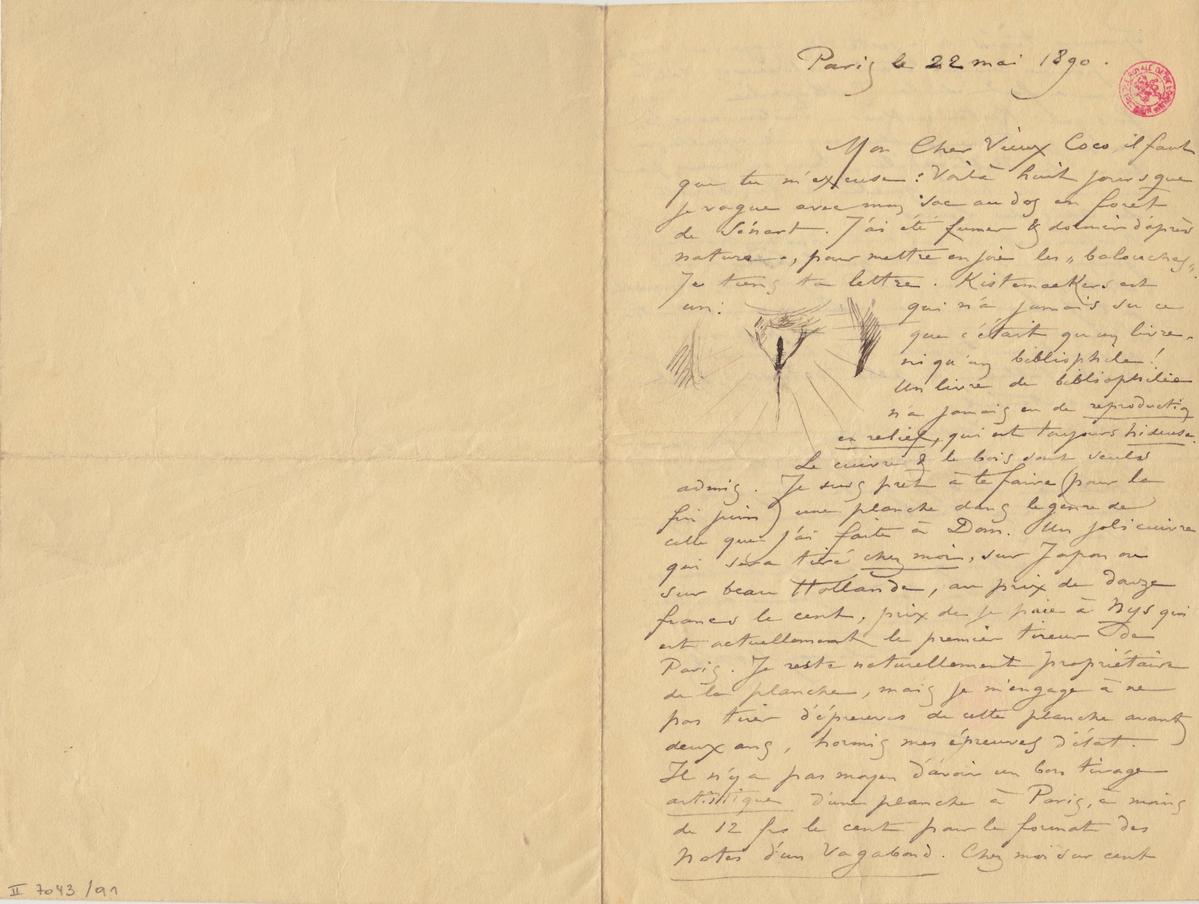 Paris le 22 mai 1890.
Mon Cher Vieux Coco, il faut
que tu m'excuse : Voilà huit jours que
je vague avec mon sac au dos en foret
de Sénart. J'ai été fumer & dormir d'après
nature, pour mettre en joie les „ balouches „
Je tiens ta lettre. Kistemaekers est
un : qui n'a jamais su ce
que c'était qu'un livre,
ni qu'un bibliophile !
Un livre de bibliophilie
n'a jamais eu de reproduction
en relief, qui est toujours hideuse.
Le cuivre & le bois sont seuls
admis. Je suis prêt à te faire (pour la
fin juin) une planche dans le genre de
celle que j'ai faite à Dom. Un joli cuivre
qui sera tiré chez moi, sur Japon ou
sur beau Hollande, au prix de douze
francs le cent, prix de je paie à Nys qui
est actuellement le premier tireur de
Paris. Je reste naturellement propriétaire
de la planche, mais je m'engage à ne
pas tirer d'épreuves de cette planche avant
deux ans, hormis mes épreuves d'état.
Il n'y a pas moyen d'avoir un bon tirage
artistique d'une planche à Paris, à moins
de 12 frs le cent pour le format des
Notes d'un Vagabond. Chez moi sur cent
II 7043 / 91